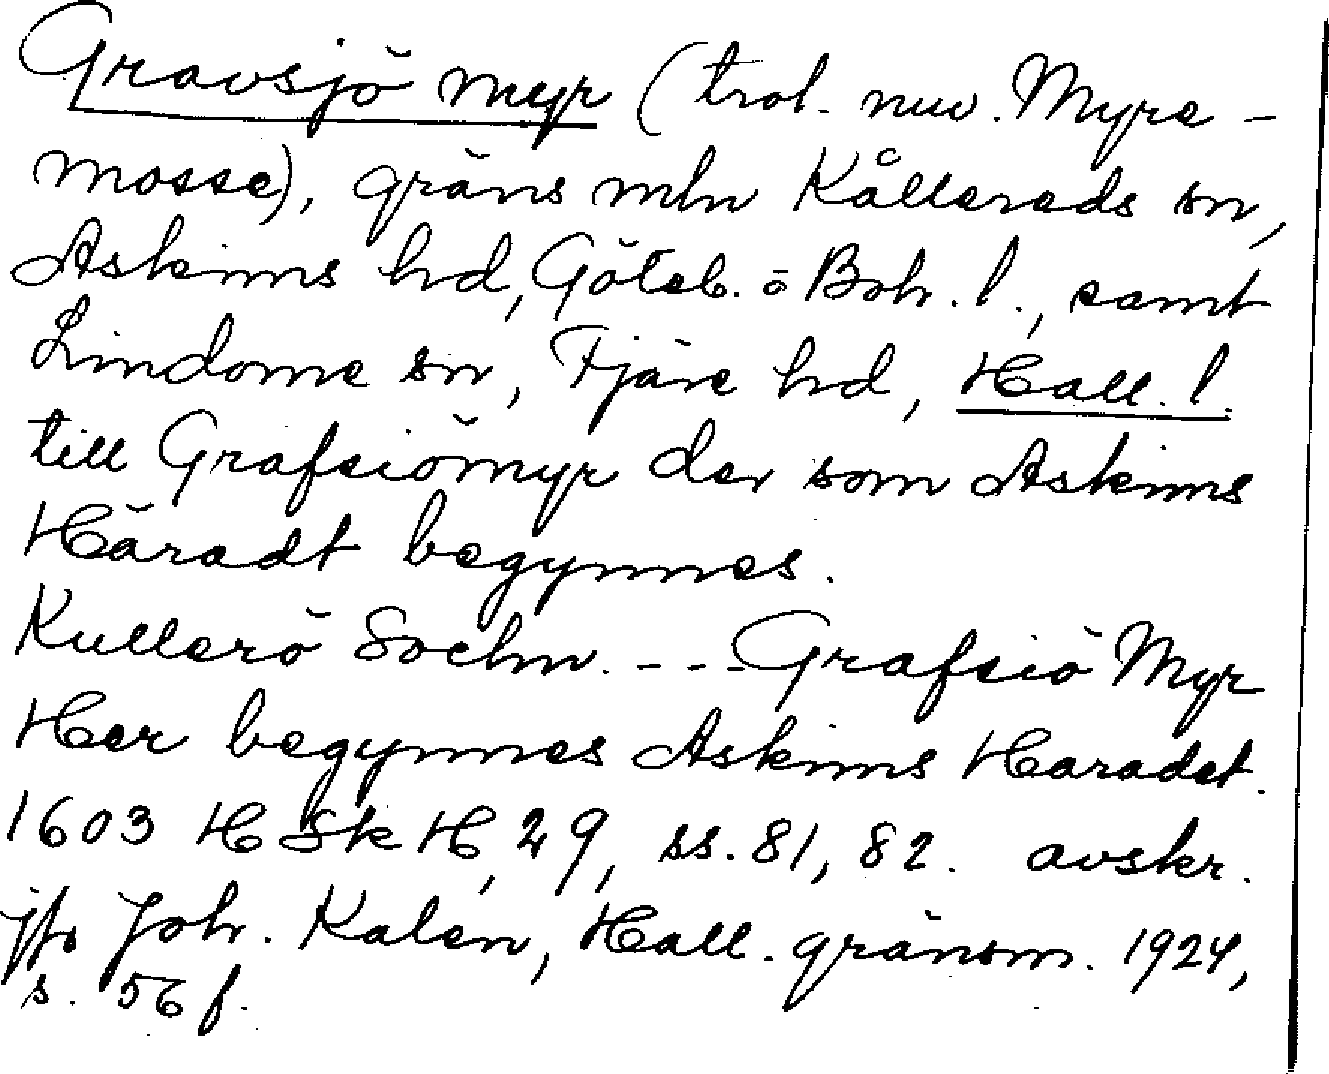 Gravsjö myr (trol. nuv. Myre-
mosse), gräns mln Kållereds sn,
Askims hd, Göteb. o Boh. l., samt
Lindome sn, Fjäre hd, Hall. l.
till Grafsiömyr der som Askims
Häradt begynnes.
Kullerö Sochn. - - - Grafsiö Myr
Her begynnes Askims Haradet.
1603 HSkH, 29, ss. 81, 82. avskr.
jfr Joh. Kalen, Hall. gränsm. 1924,
s. 56 f.